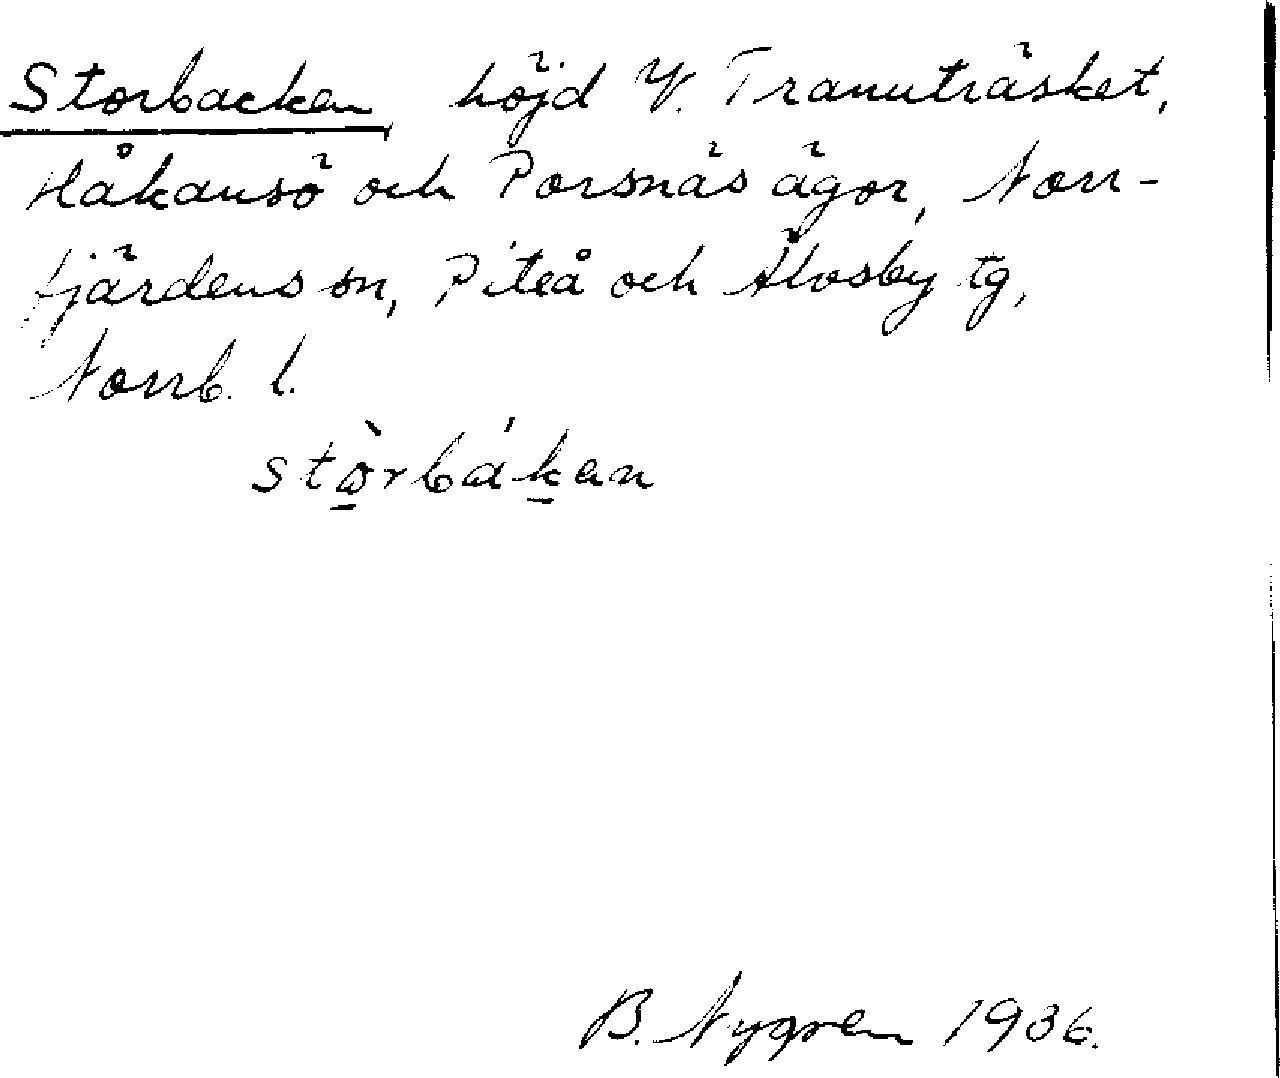 Storbacken höjd V. Tranuträsket,
Håkansö och Porsnäs ägor, Norr-
fjärdens sn, Piteå och Älvsby tg,
Norrb. l.
stòrbákan
B. Nygren 1936.